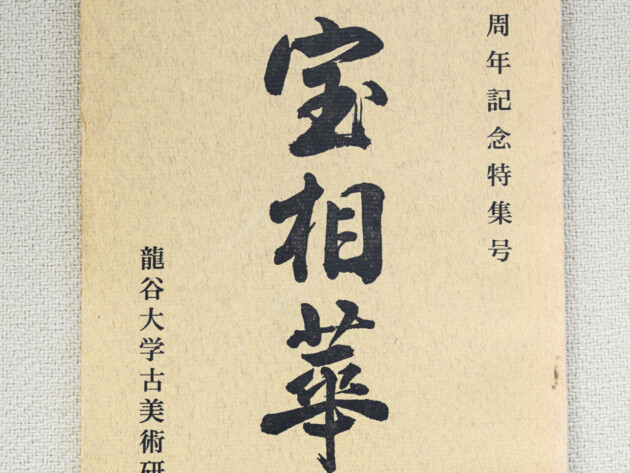 周年記念特集号
宝相華
龍谷大学古美術研